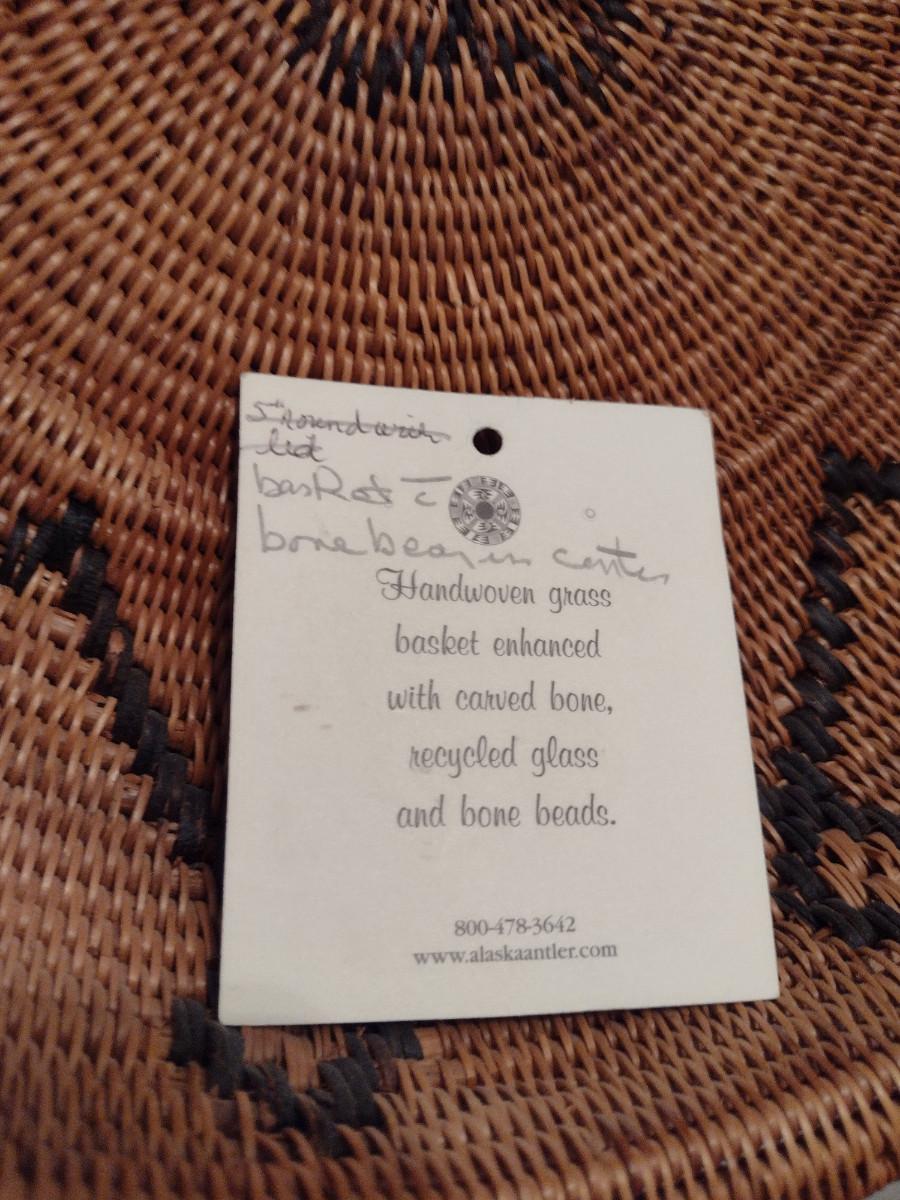 5" round with
lid
basket c̄
bone bear in center
Handwoven grass
basket enhanced
with carved bone,
recycled glass
and bone beads.
800-478-3642
www.alaskaantler.com